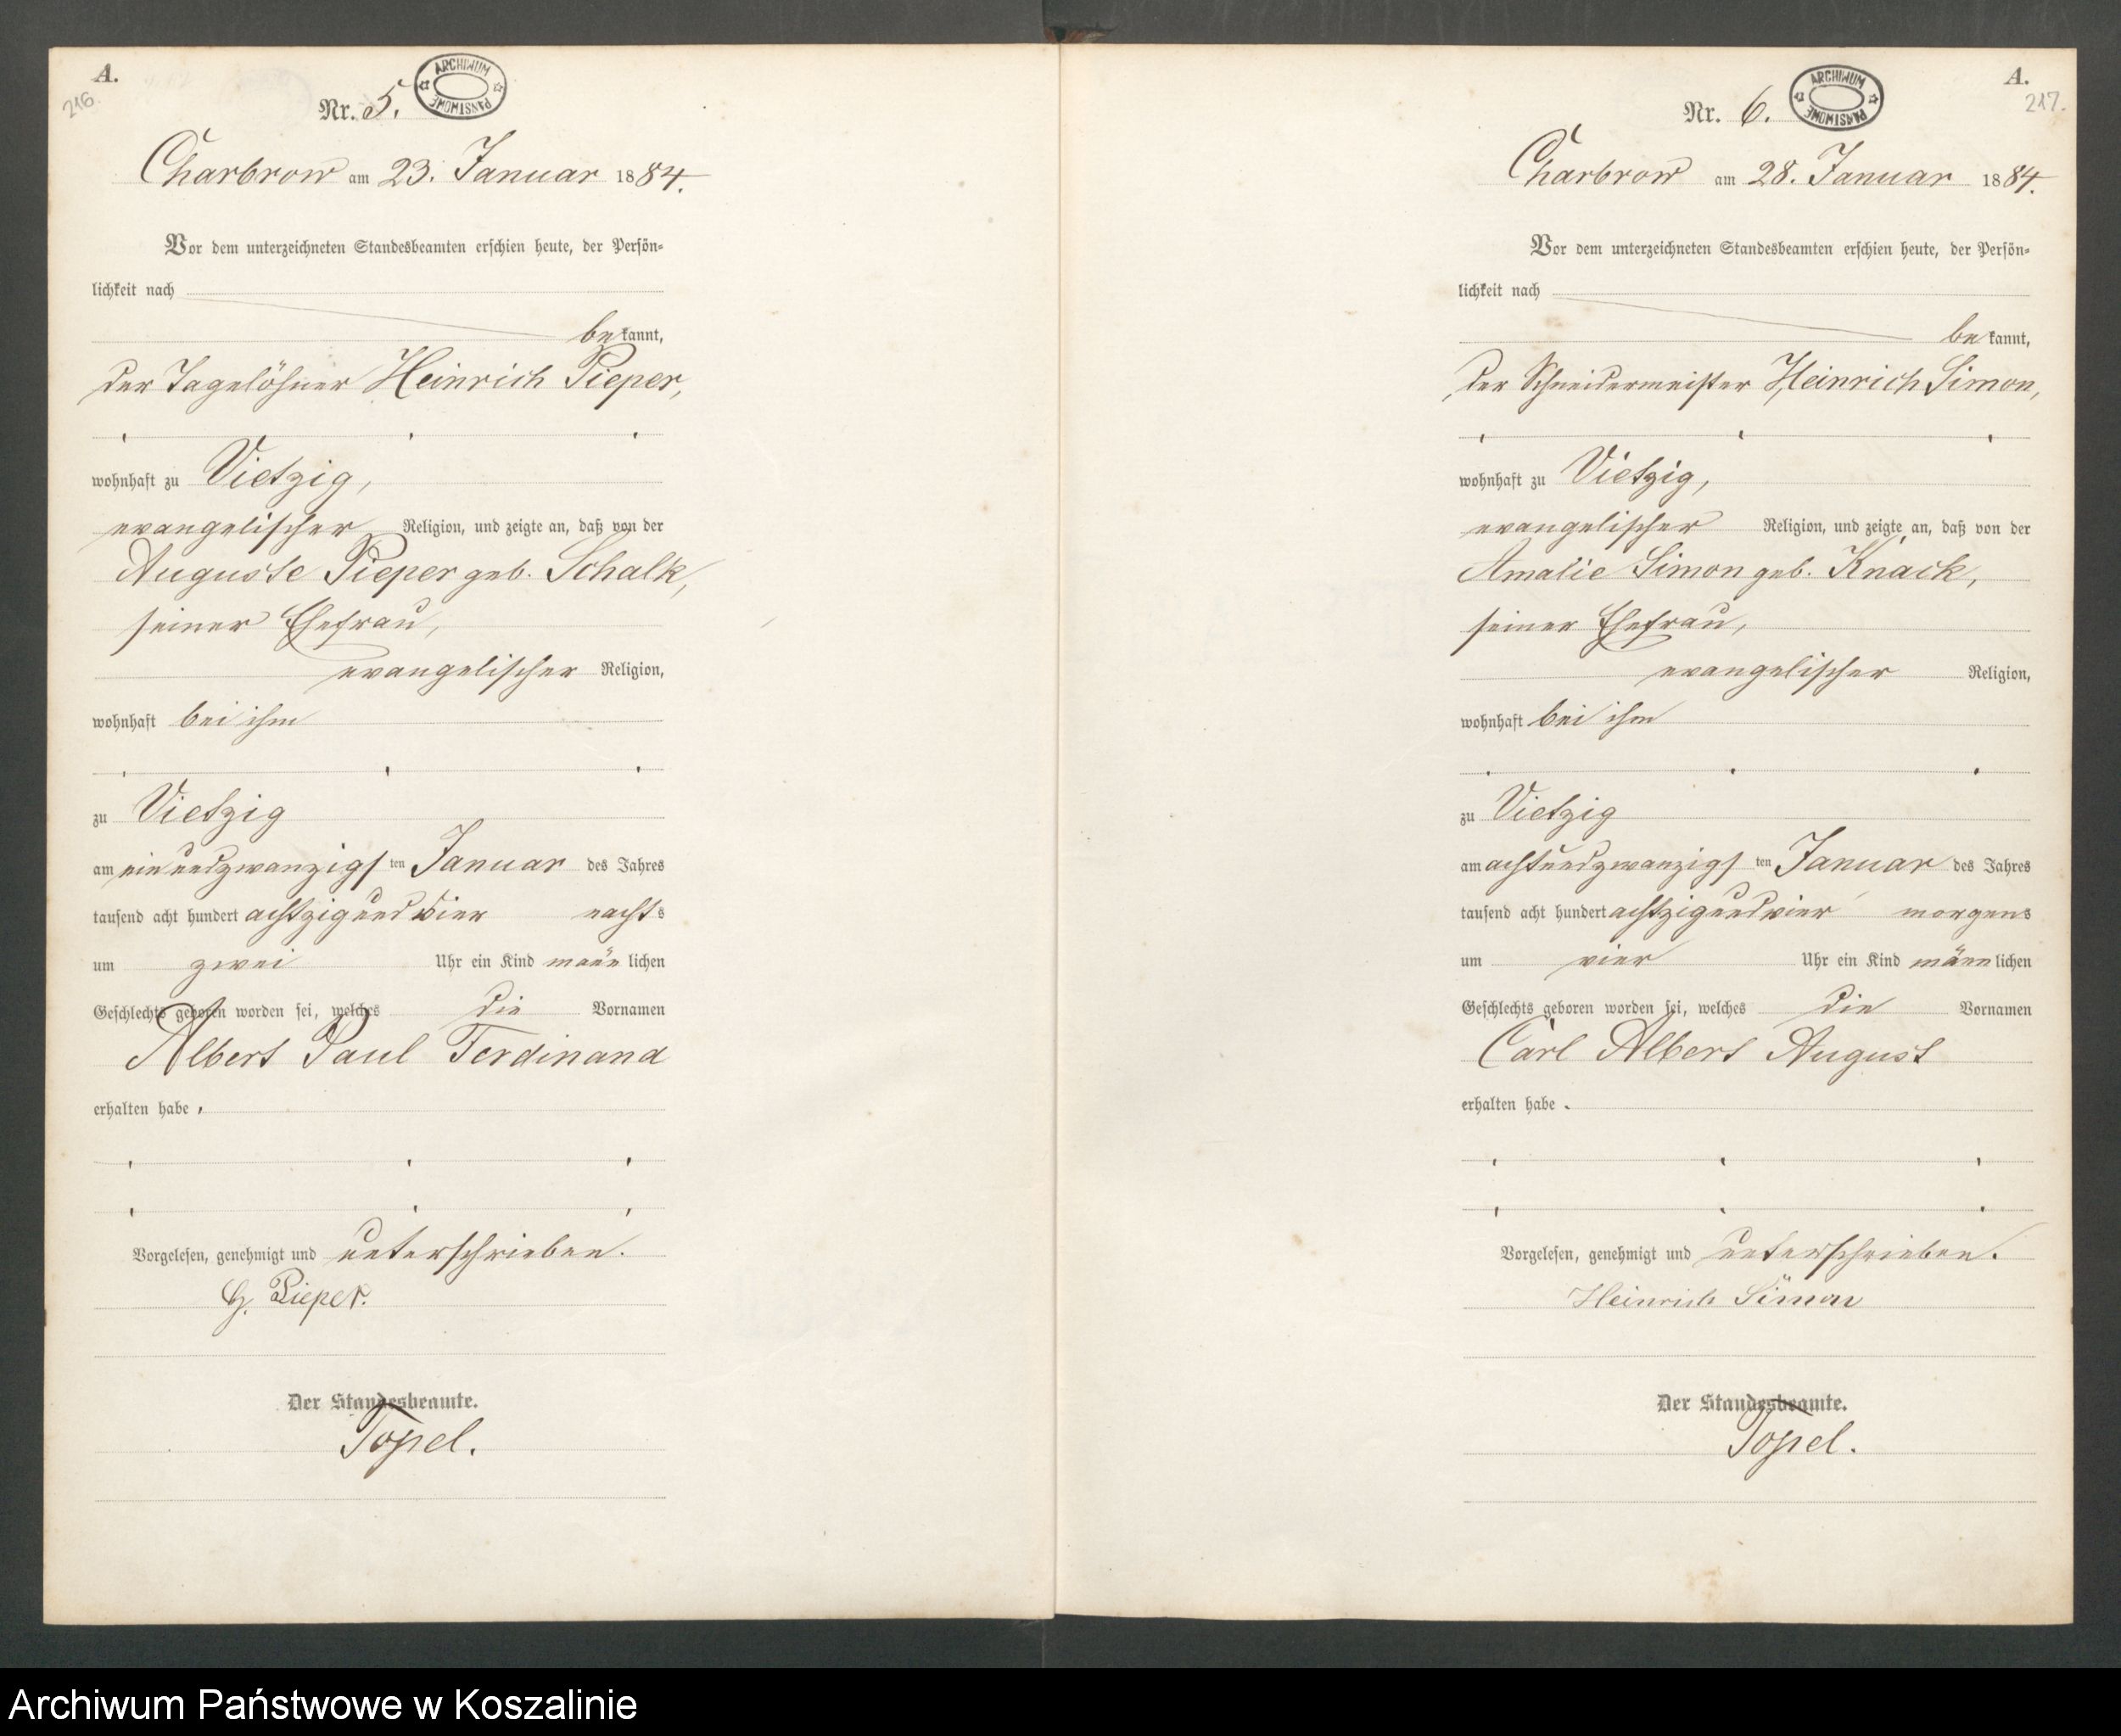 A.
216.
Nr. 5.
ARCHIWUM PAŃSTWOWE
Charbrow am 23. Januar 1884.
Vor dem unterzeichneten Standesbeamten erschien heute, der Persön-
lichkeit nach
bekannt,
der Tagelöhner Heinrich Pieper,
wohnhaft zu Vietzig,
evangelischer Religion, und zeigte an, daß von der
Auguste Pieper geb. Schalk,
seiner Ehefrau,
evangelischer Religion,
wohnhaft bei ihm
zu Vietzig
am einundzwanzigsten Januar des Jahres
tausend acht hundert achtzig und vier nachts
um zwei Uhr ein Kind männlichen
Geschlechts geboren worden sei, welches die Vornamen
Albert Paul Ferdinand
erhalten habe.
Vorgelesen, genehmigt und unterschrieben.
H. Pieper.
Der Standesbeamte.
Topel.
A.
217.
Nr. 6.
ARCHIWUM PAŃSTWOWE
Charbrow am 28. Januar 1884.
Vor dem unterzeichneten Standesbeamten erschien heute, der Persön-
lichkeit nach
bekannt,
der Schneidermeister Heinrich Simon,
wohnhaft zu Vietzig,
evangelischer Religion, und zeigte an, daß von der
Amalie Simon geb. Knack,
seiner Ehefrau,
evangelischer Religion,
wohnhaft bei ihm
zu Vietzig
am achtundzwanzigsten Januar des Jahres
tausend acht hundert achtzig und vier morgens
um vier Uhr ein Kind männlichen
Geschlechts geboren worden sei, welches die Vornamen
Carl Albert August
erhalten habe.
Vorgelesen, genehmigt und unterschrieben.
Heinrich Simon
Der Standesbeamte.
Topel.
Archiwum Państwowe w Koszalinie